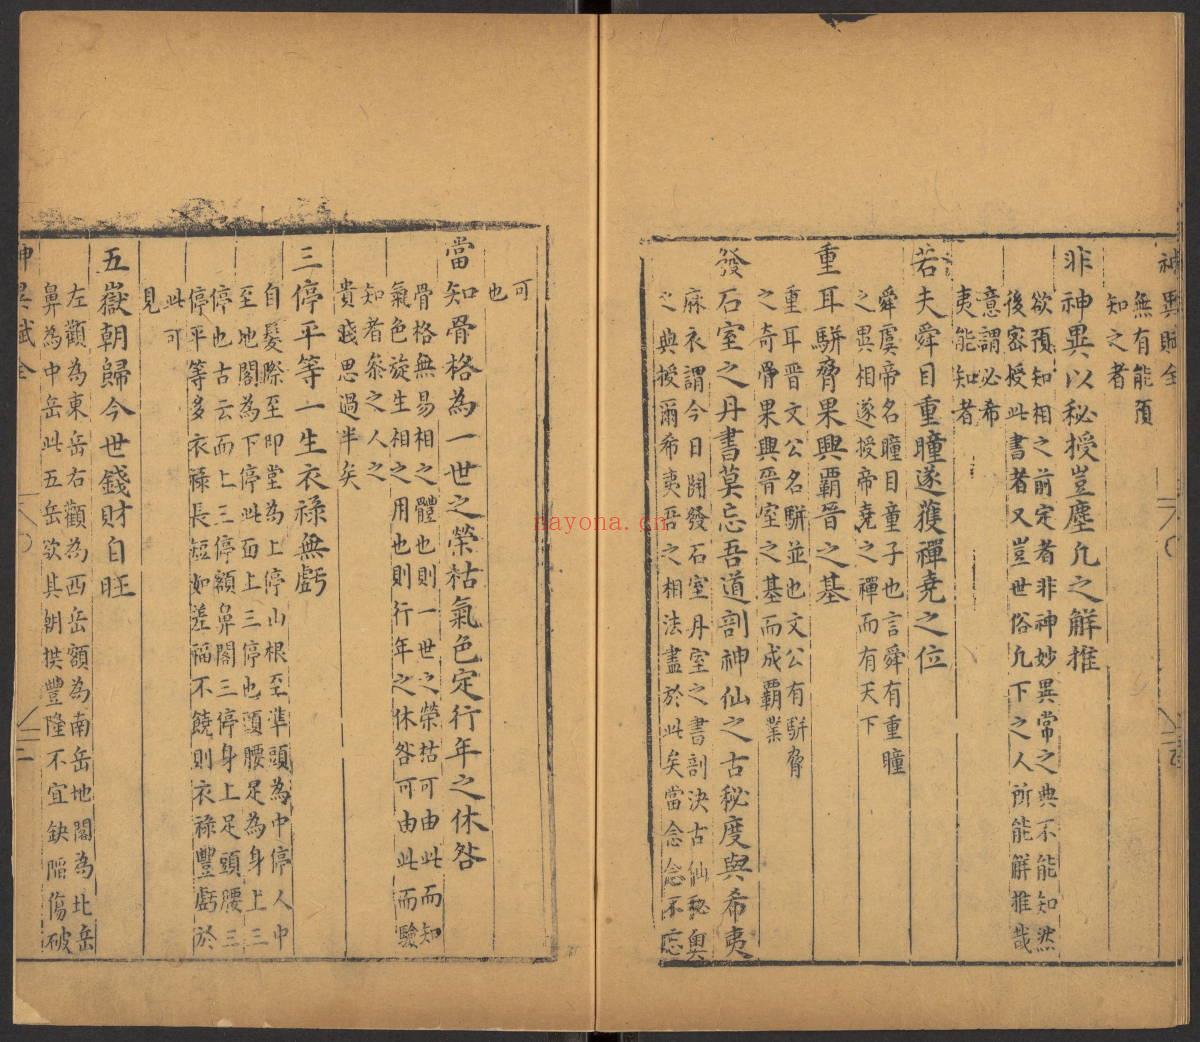 神異賦全
無有能預
知之者
非神異以秘授豈塵凢之觧推
欲預知相之前定者非神妙異常之典不能知然
後密授此書者又豈世俗凢下之人所能觧推哉
意謂必希
夷能知者
若夫舜目重瞳遂獲禪堯之位
舜虞帝名瞳目童子也言舜有重瞳
之異相遂授帝堯之禪而有天下
重耳駢脅果興覇晉之基
重耳晋文公名駢並也文公有駢脅
之奇骨果興晉室之基而成覇業
發石室之丹書莫忘吾道剖神仙之古秘度與希夷
麻衣謂今日開發石室丹室之書剖決古仙秘奧
之典授爾希夷吾之相法盡於此矣當念念不忘
可
也
當知骨格為一世之榮枯氣色定行年之休咎
骨格無易相之體也則一世之榮枯可由此而知
氣色旋生相之用也則行年之休咎可由此而驗
知者叅之人之
貴賤思過半矣
三停平等一生衣祿無虧
自髮際至印堂為上停山根至凖頭為中停人中
至地閣為下停此面上三停也頭腰足為身上三
停也古云面上三停額鼻閣三停身上足頭腰三
停平等多衣祿長短如差福不饒則衣祿豐虧於
此可
見
五嶽朝歸今世錢財自旺
左顴為東岳右顴為西岳額為南岳地閣為北岳
鼻為中岳此五岳欲其朝拱豐隆不宜缺陷傷破
神異賦全
nayona.cn